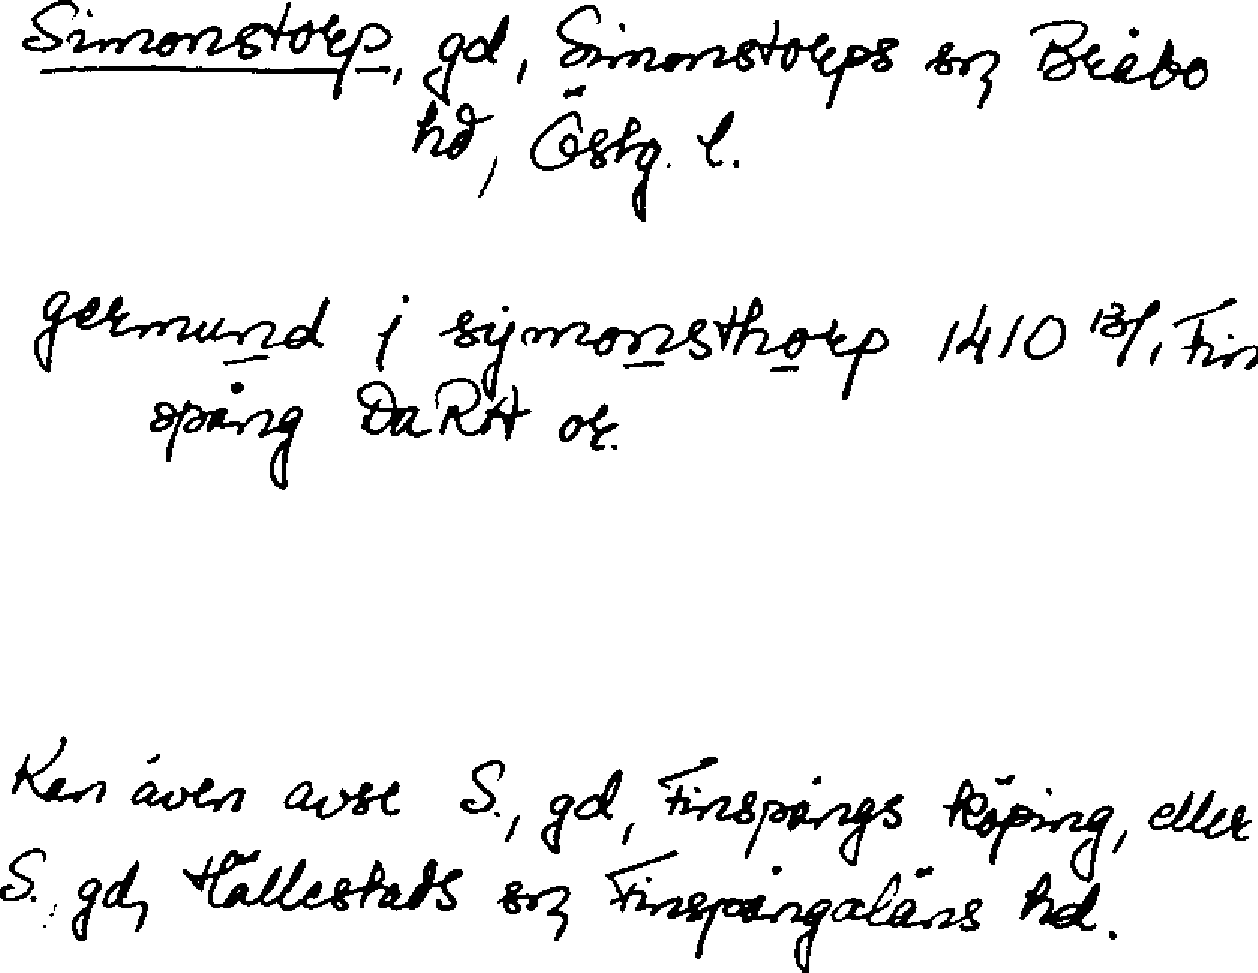 Simonstorp, gd, Simonstorps sn, Bråbo
hd, Östg. l.
germund j sijmonsthorp 1410 13/1 Fin
spång DaRA or.
Kan även avse S., gd, Finspångs köping, eller
S. gd, Hällestads sn, Finspångaläns hd.